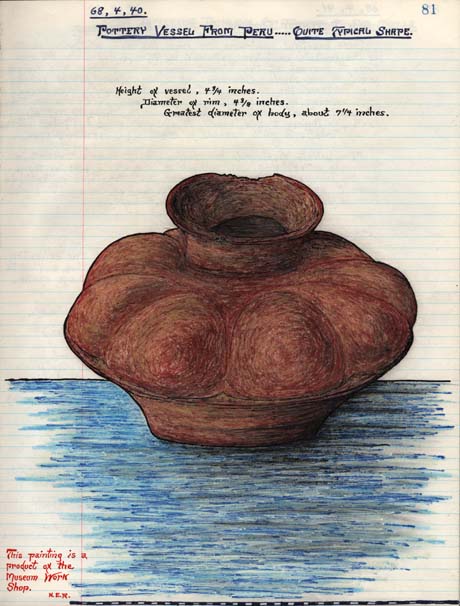 68, 4, 40.
81
Pottery Vessel From Peru..... Quite Typical Shape.
Height of vessel, 4 3/4 inches.
Diameter of rim, 4 3/8 inches.
Greatest diameter of body, about 7 1/4 inches.
This painting is a
product of the
Museum Work
Shop.
N.E.K.